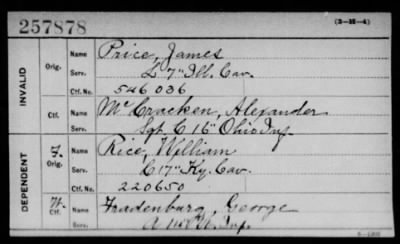 257878 (3-H-4)
INVALID
Orig. Name Price, James
Serv. L 7" Ill. Cav.
Ctf. No. 546036
Ctf. Name McCracken, Alexander
Serv. Sgt. C 16" Ohio Inf.
DEPENDENT
F. Orig. Name Rice, William
Serv. C 17" Ky. Cav.
Ctf. No. 220650
W. Ctf. Name Fradenburg, George
Serv. A Inf.